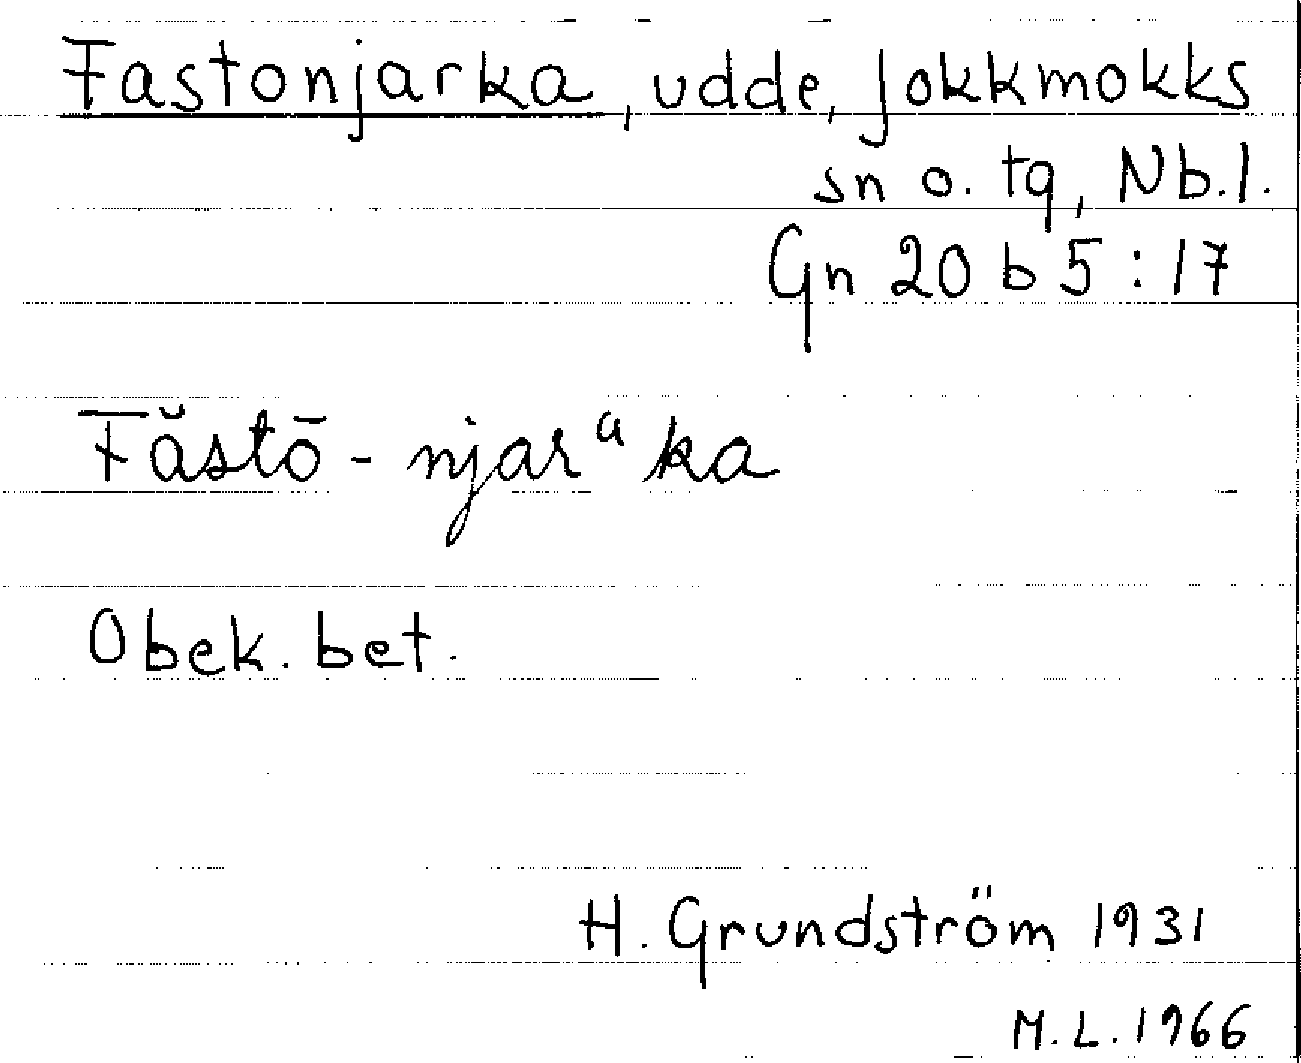 Fastonjarka, udde, Jokkmokks
sn o. tg, Nb.l.
Gn 20 b 5:17
Făstō-njarᵃka
Obek. bet.
H. Grundström 1931
M.L. 1966